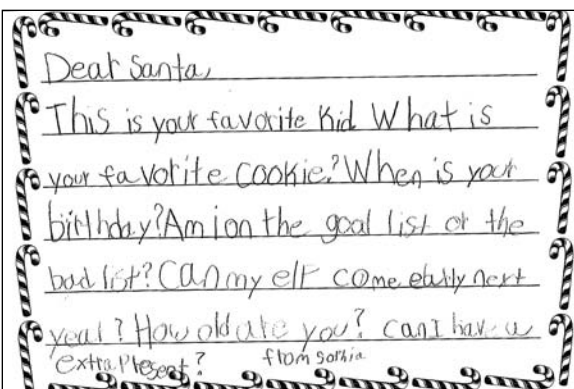 Dear Santa,
This is your favorite Kid What is
your favorite cookie? When is your
birthday? Am i on the goal list or the
bad list? Can my elf come early next
year? How old are you? can I have a
extra Present?
from sophia